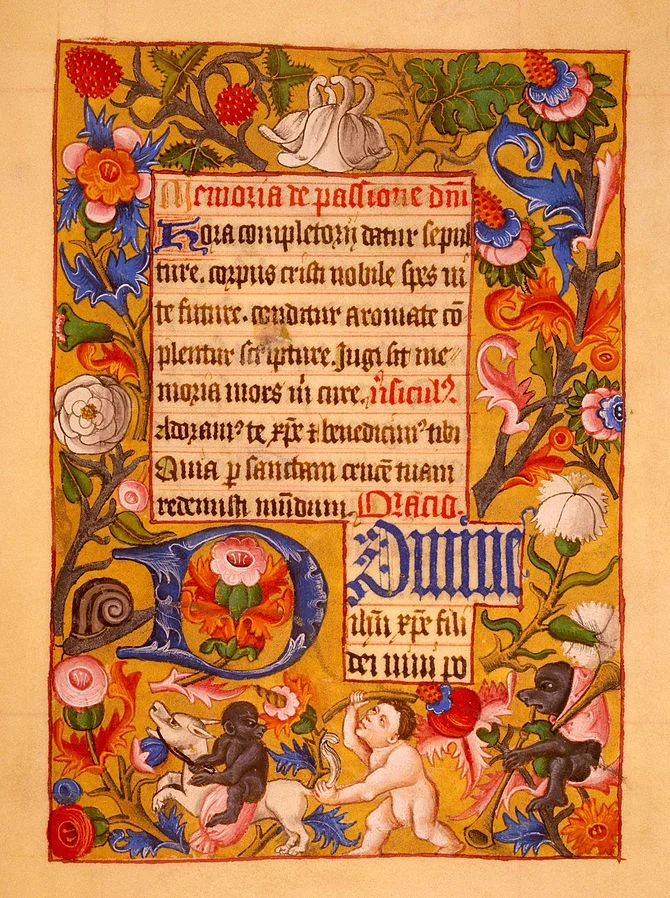 Memoria de passione dm̄
Hora completorij datur sepul
ture. corpus cristi nobile sp̄s vi
te future. conditur aromate cō
plentur scripture. Jugi sit me
moria mors m̄ cure. v̄sicul9
Adoram9 te xp̄e ⁊ benedicim9 tibi
Quia p̱ sanctam crucē tuam
redemisti mūdum. Oracio.
Domine
ih̄u xp̄e fili
dei uiui po